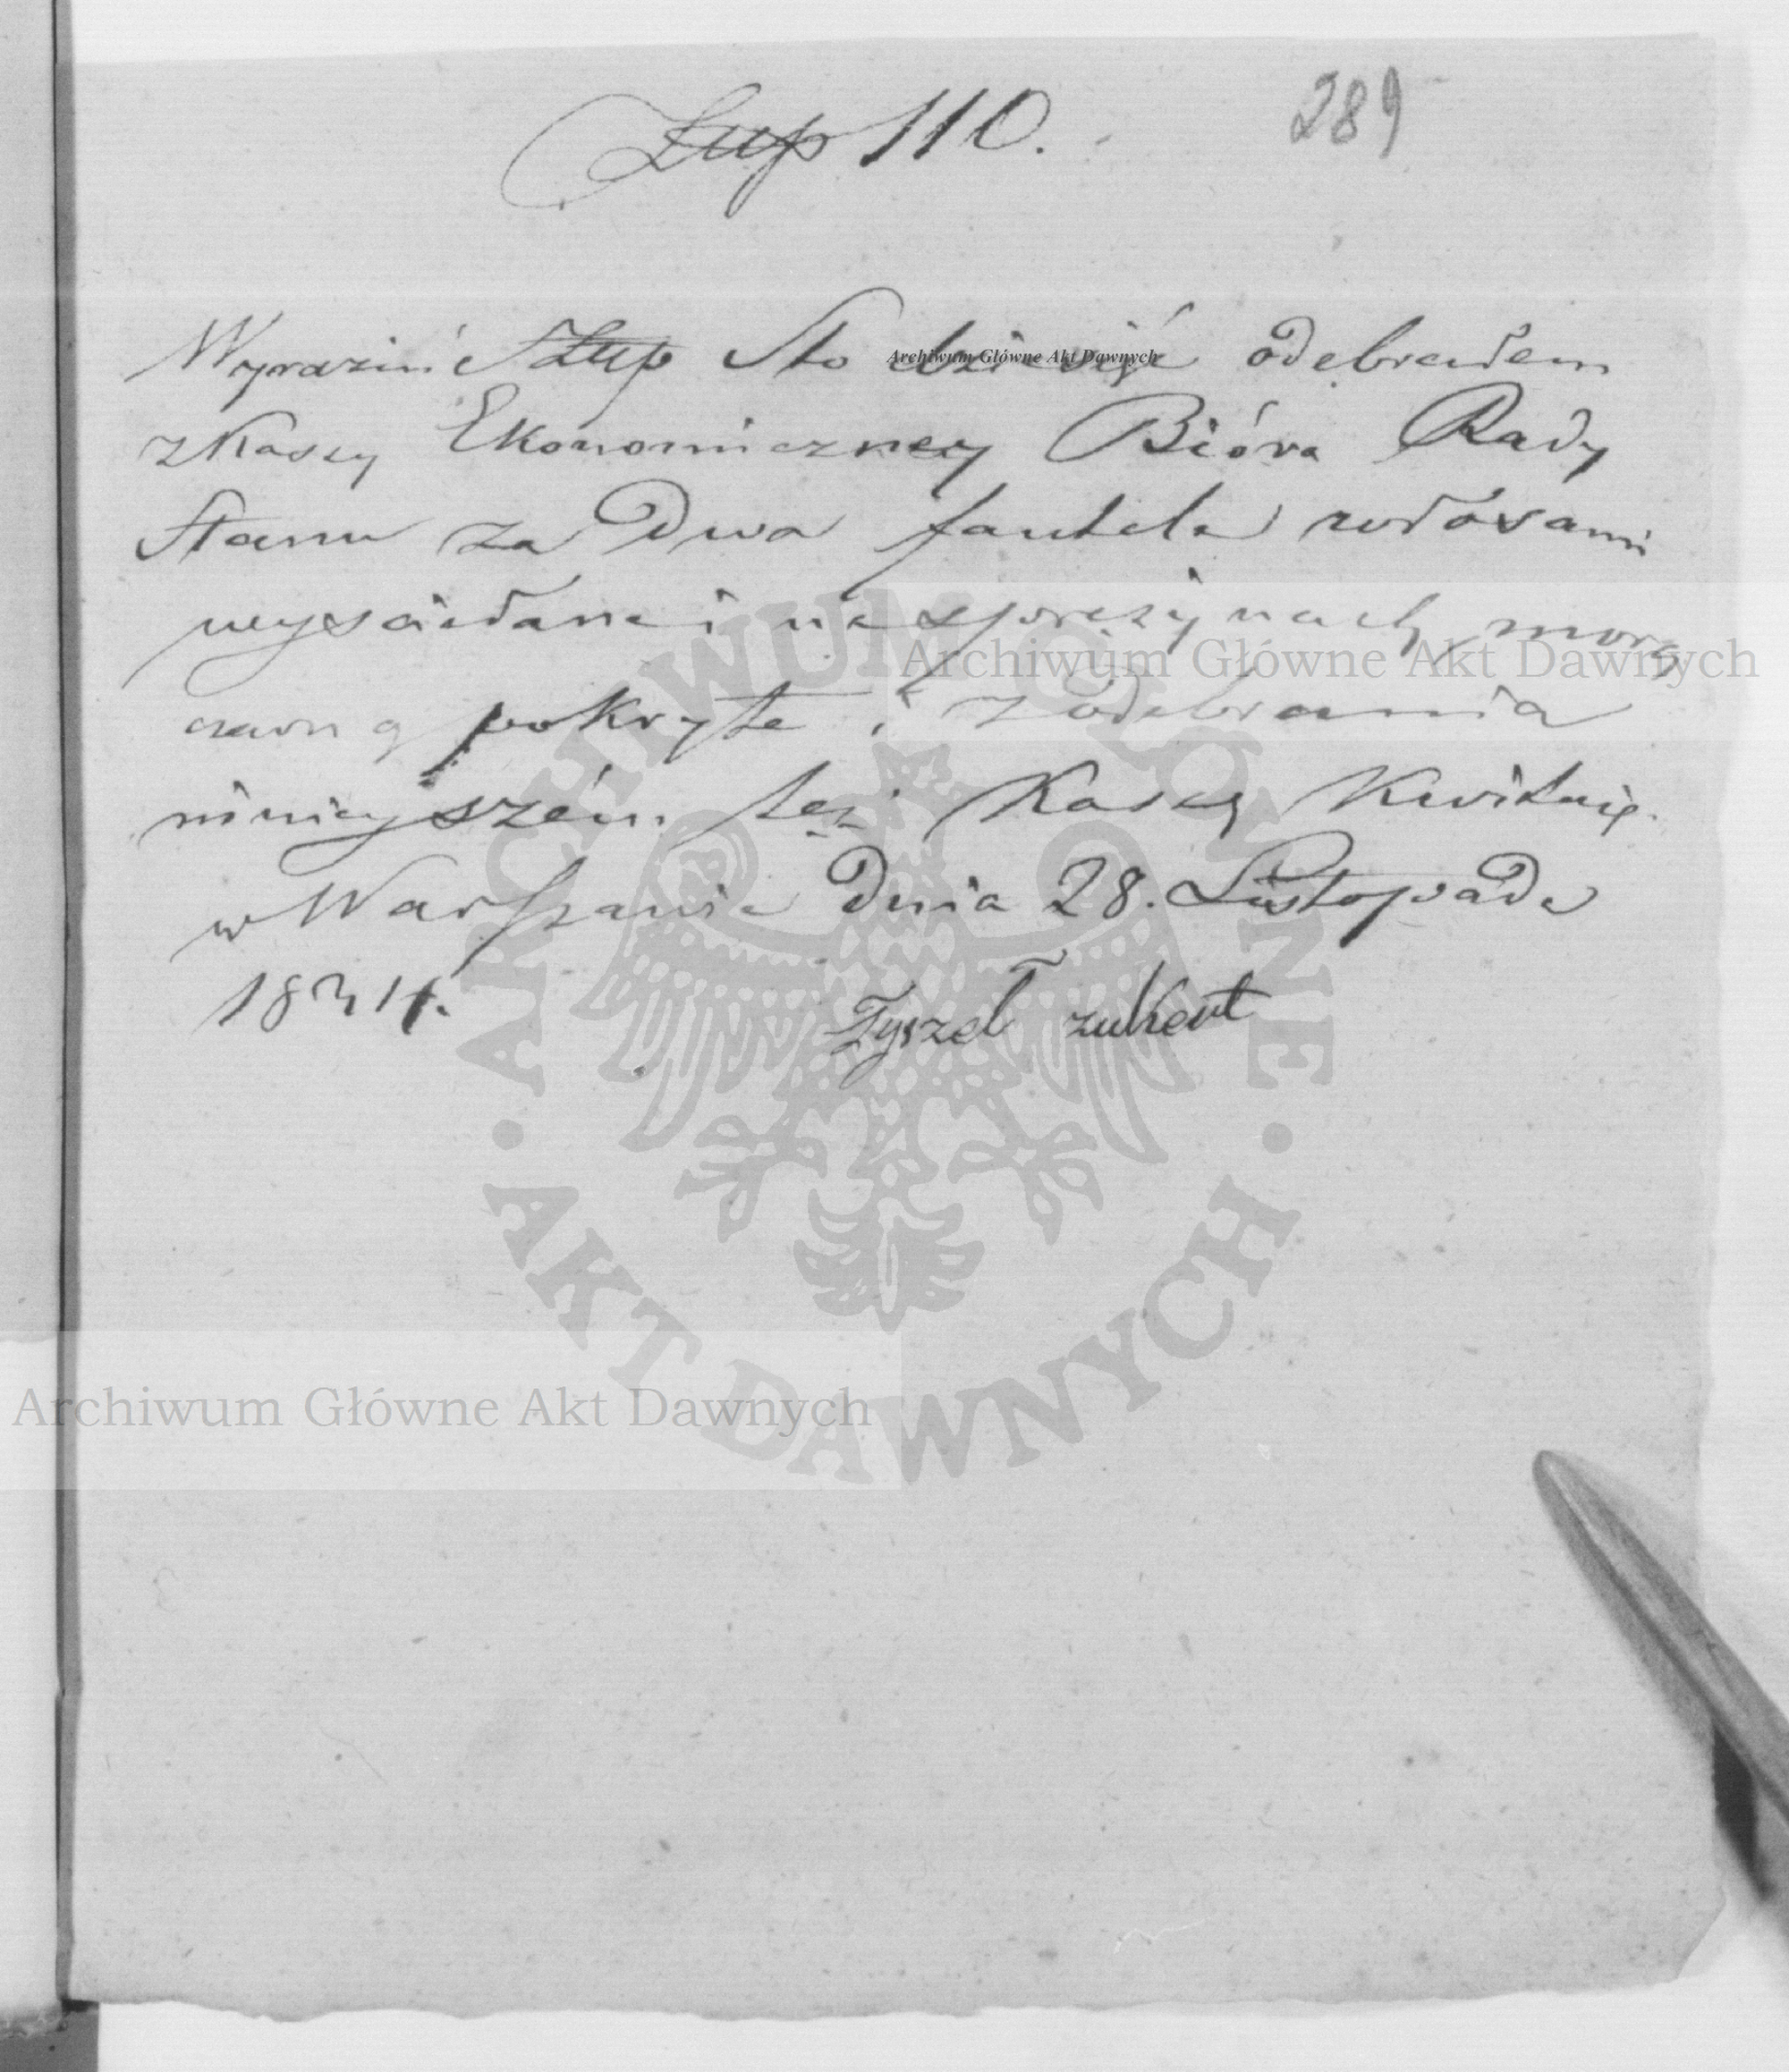 Złup 110.
289
Wyraźnie Złup Sto dziesięć odebrałem
z Kassy Ekonomiczney Bióra Rady
Stanu za Dwa fautele włosami
wyścielane i na sprężynach morą
czarną pokryte i z odebrania
ninieyszém też Kassę Kwituię.
w Warszawie dnia 28. Listopada
1834.
Zyszel zukert
Archiwum Główne Akt Dawnych
Archiwum Główne Akt Dawnych
Archiwum Główne Akt Dawnych
ARCHIWUM GŁÓWNE · AKT DAWNYCH ·